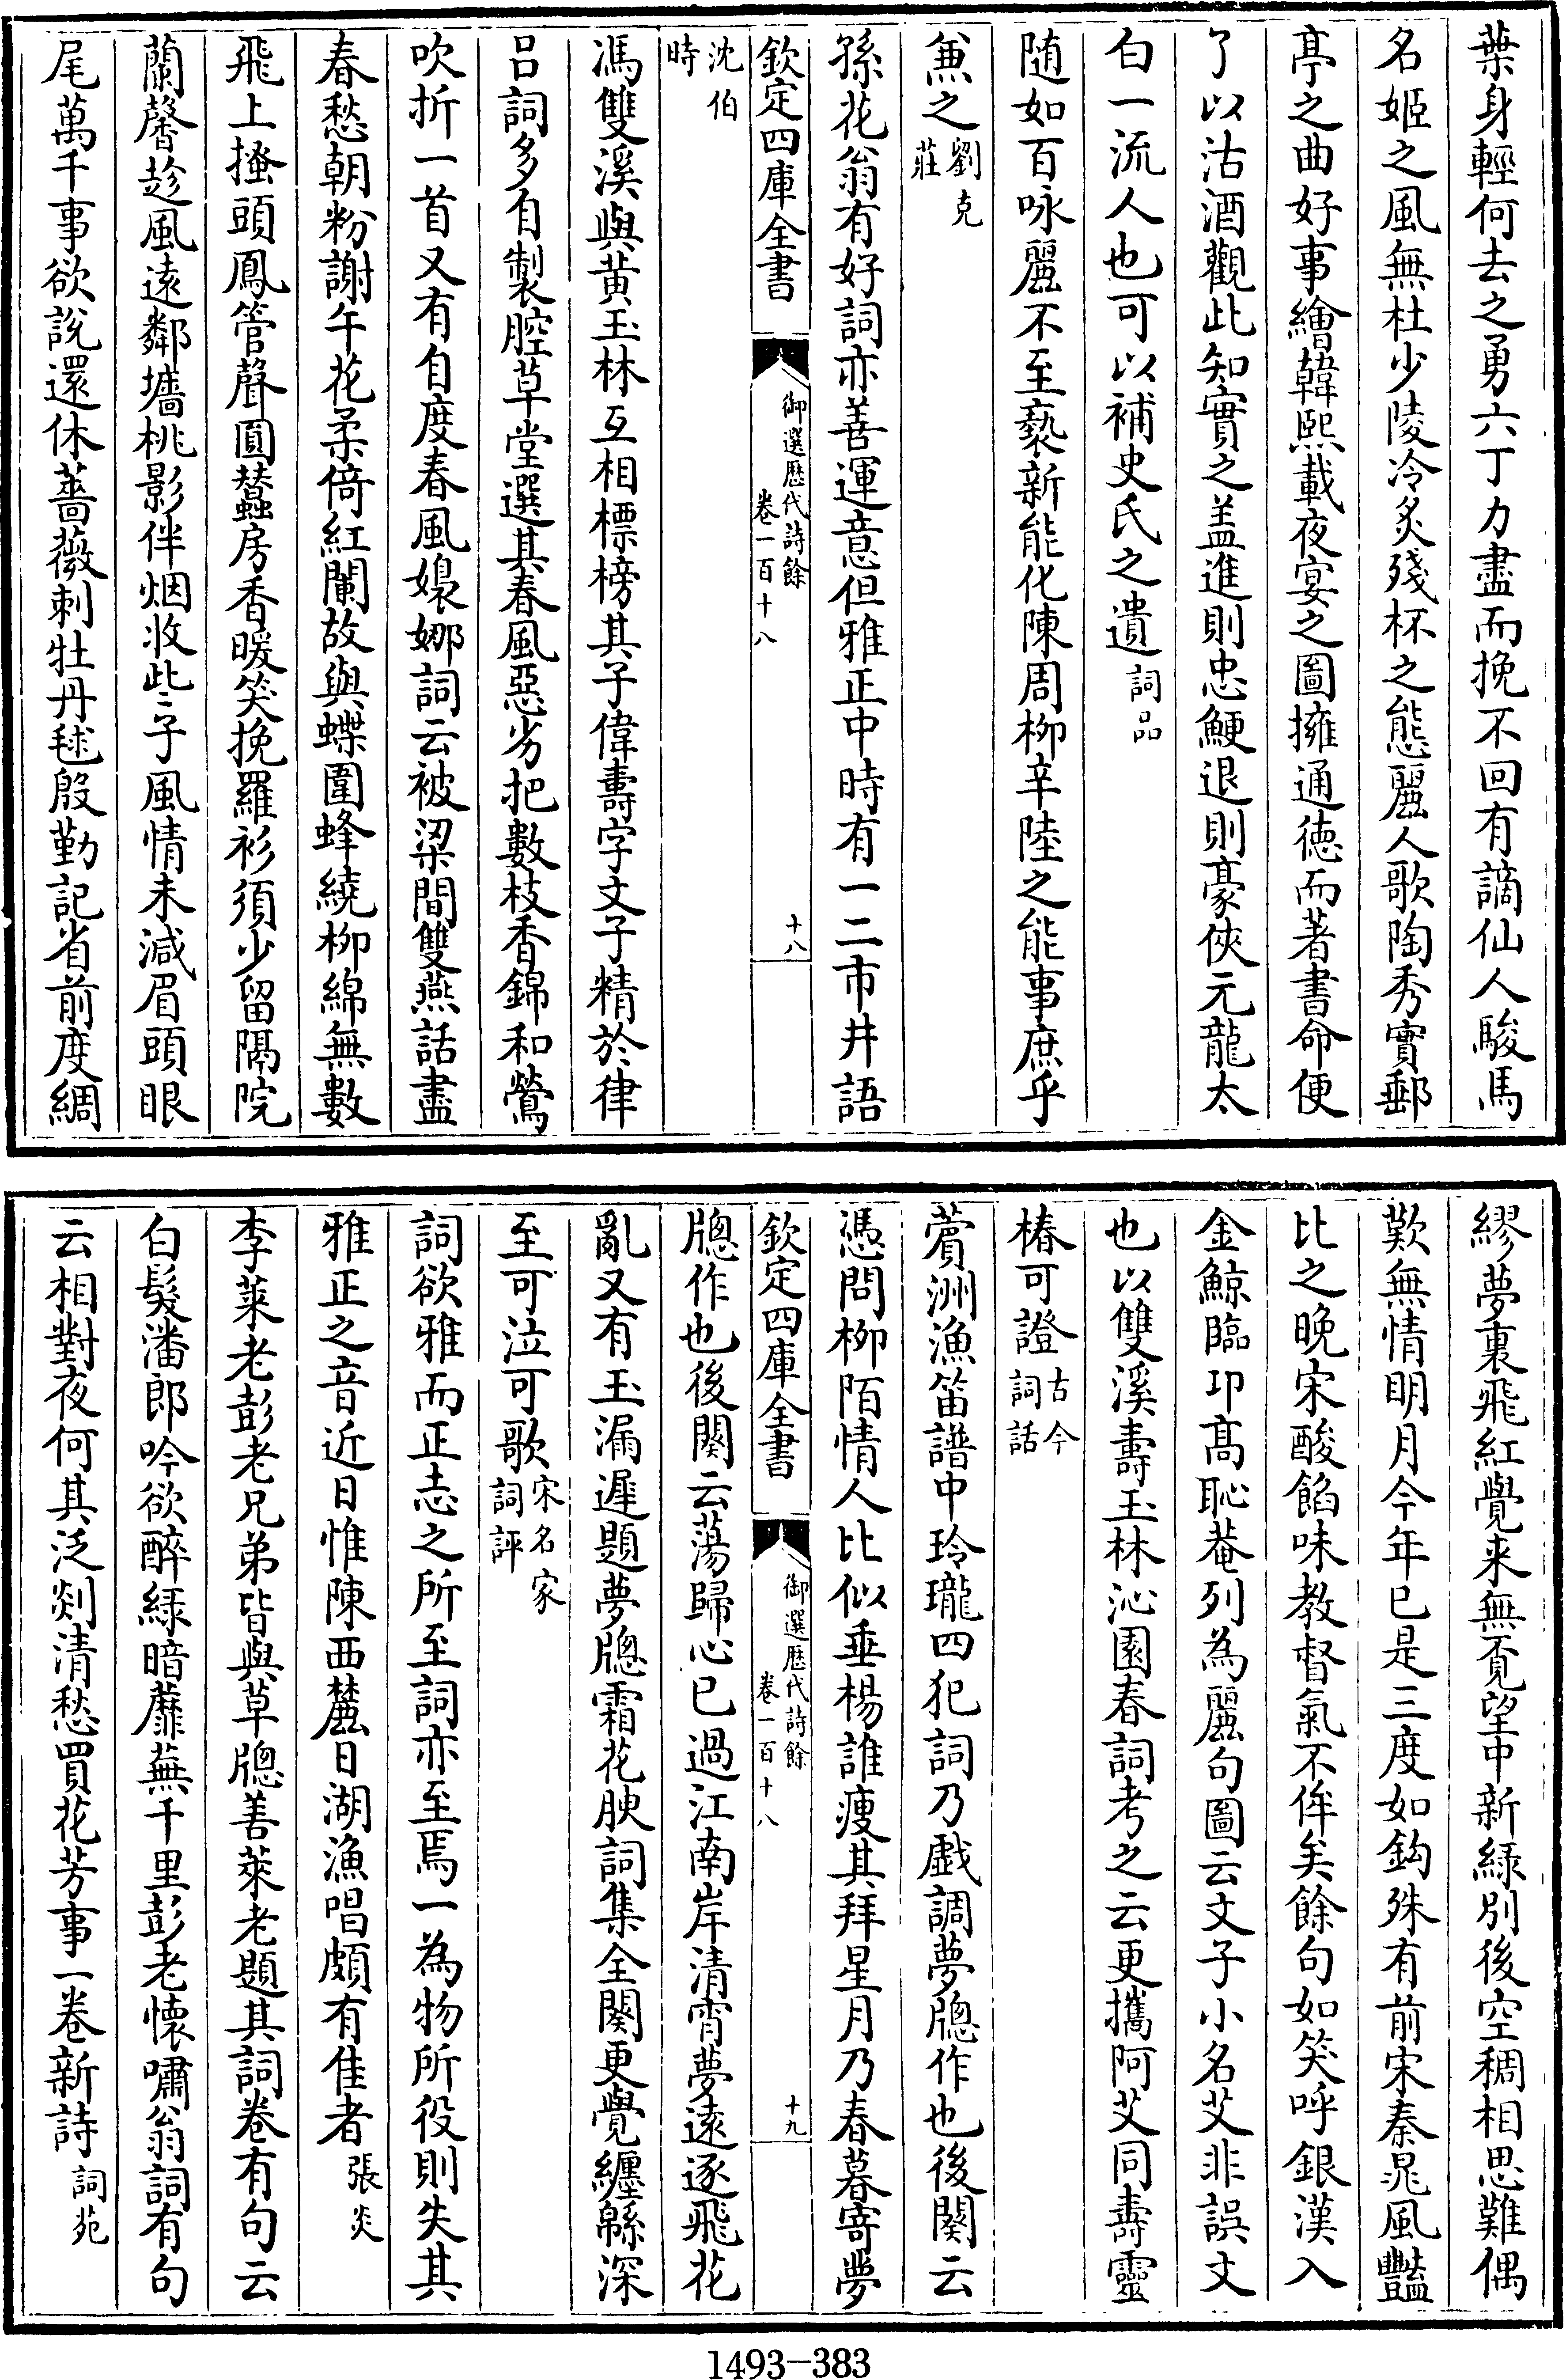 葉身輕何去之勇六丁力盡而挽不回有謫仙人駿馬
名姬之風無杜少陵冷炙殘杯之態麗人歌陶秀實郵
亭之曲好事繪韓熙載夜宴之圖擁通德而著書命便
了以沽酒觀此知實之葢進則忠鯁退則豪俠元龍太
白一流人也可以補史氏之遺詞品
随如百咏麗不至褻新能化陳周柳辛陸之能事庶乎
兼之劉克莊
孫花翁有好詞亦善運意但雅正中時有一二市井語
欽定四庫全書
御選歷代詩餘
卷一百十八
十八
沈伯時
馮雙溪與黄玉林互相標榜其子偉壽字文子精於律
吕詞多自製腔草堂選其春風惡劣把數枝香錦和鶯
吹折一首又有自度春風嬝娜詞云被梁間雙燕話盡
春愁朝粉謝午花柔倚紅闌故與蝶圍蜂繞柳綿無數
飛上搔頭鳳管聲圓蠶房香暖笑挽羅衫須少留隔院
蘭馨趂風遠鄰墻桃影伴烟收些子風情未減眉頭眼
尾萬千事欲説還休薔薇刺牡丹毬殷勤記省前度綢
繆夢裏飛紅覺来無覔望中新緑别後空稠相思難偶
歎無情明月今年已是三度如鈎殊有前宋秦晁風豔
比之晚宋酸餡味教督氣不侔矣餘句如笑呼銀漢入
金鯨臨卭高恥菴列為麗句圖云文子小名艾非誤文
也以雙溪壽玉林沁園春詞考之云更攜阿艾同壽靈
椿可證古今詞話
薲洲漁笛譜中玲瓏四犯詞乃戲調夢牕作也後闋云
憑問柳陌情人比似垂楊誰瘦其拜星月乃春暮寄夢
欽定四庫全書
御選歷代詩餘
卷一百十八
十九
牕作也後闋云蕩歸心已過江南岸清宵夢遠逐飛花
亂又有玉漏遲題夢牕霜花腴詞集全闋更覺纏緜深
至可泣可歌宋名家詞評
詞欲雅而正志之所至詞亦至焉一為物所役則失其
雅正之音近日惟陳西麓日湖漁唱頗有佳者張炎
李萊老彭老兄弟皆與草牕善萊老題其詞卷有句云
白髮潘郎吟欲醉緑暗蘼蕪千里彭老懷嘯翁詞有句
云相對夜何其泛剡清愁買花芳事一卷新詩詞苑
1493—383